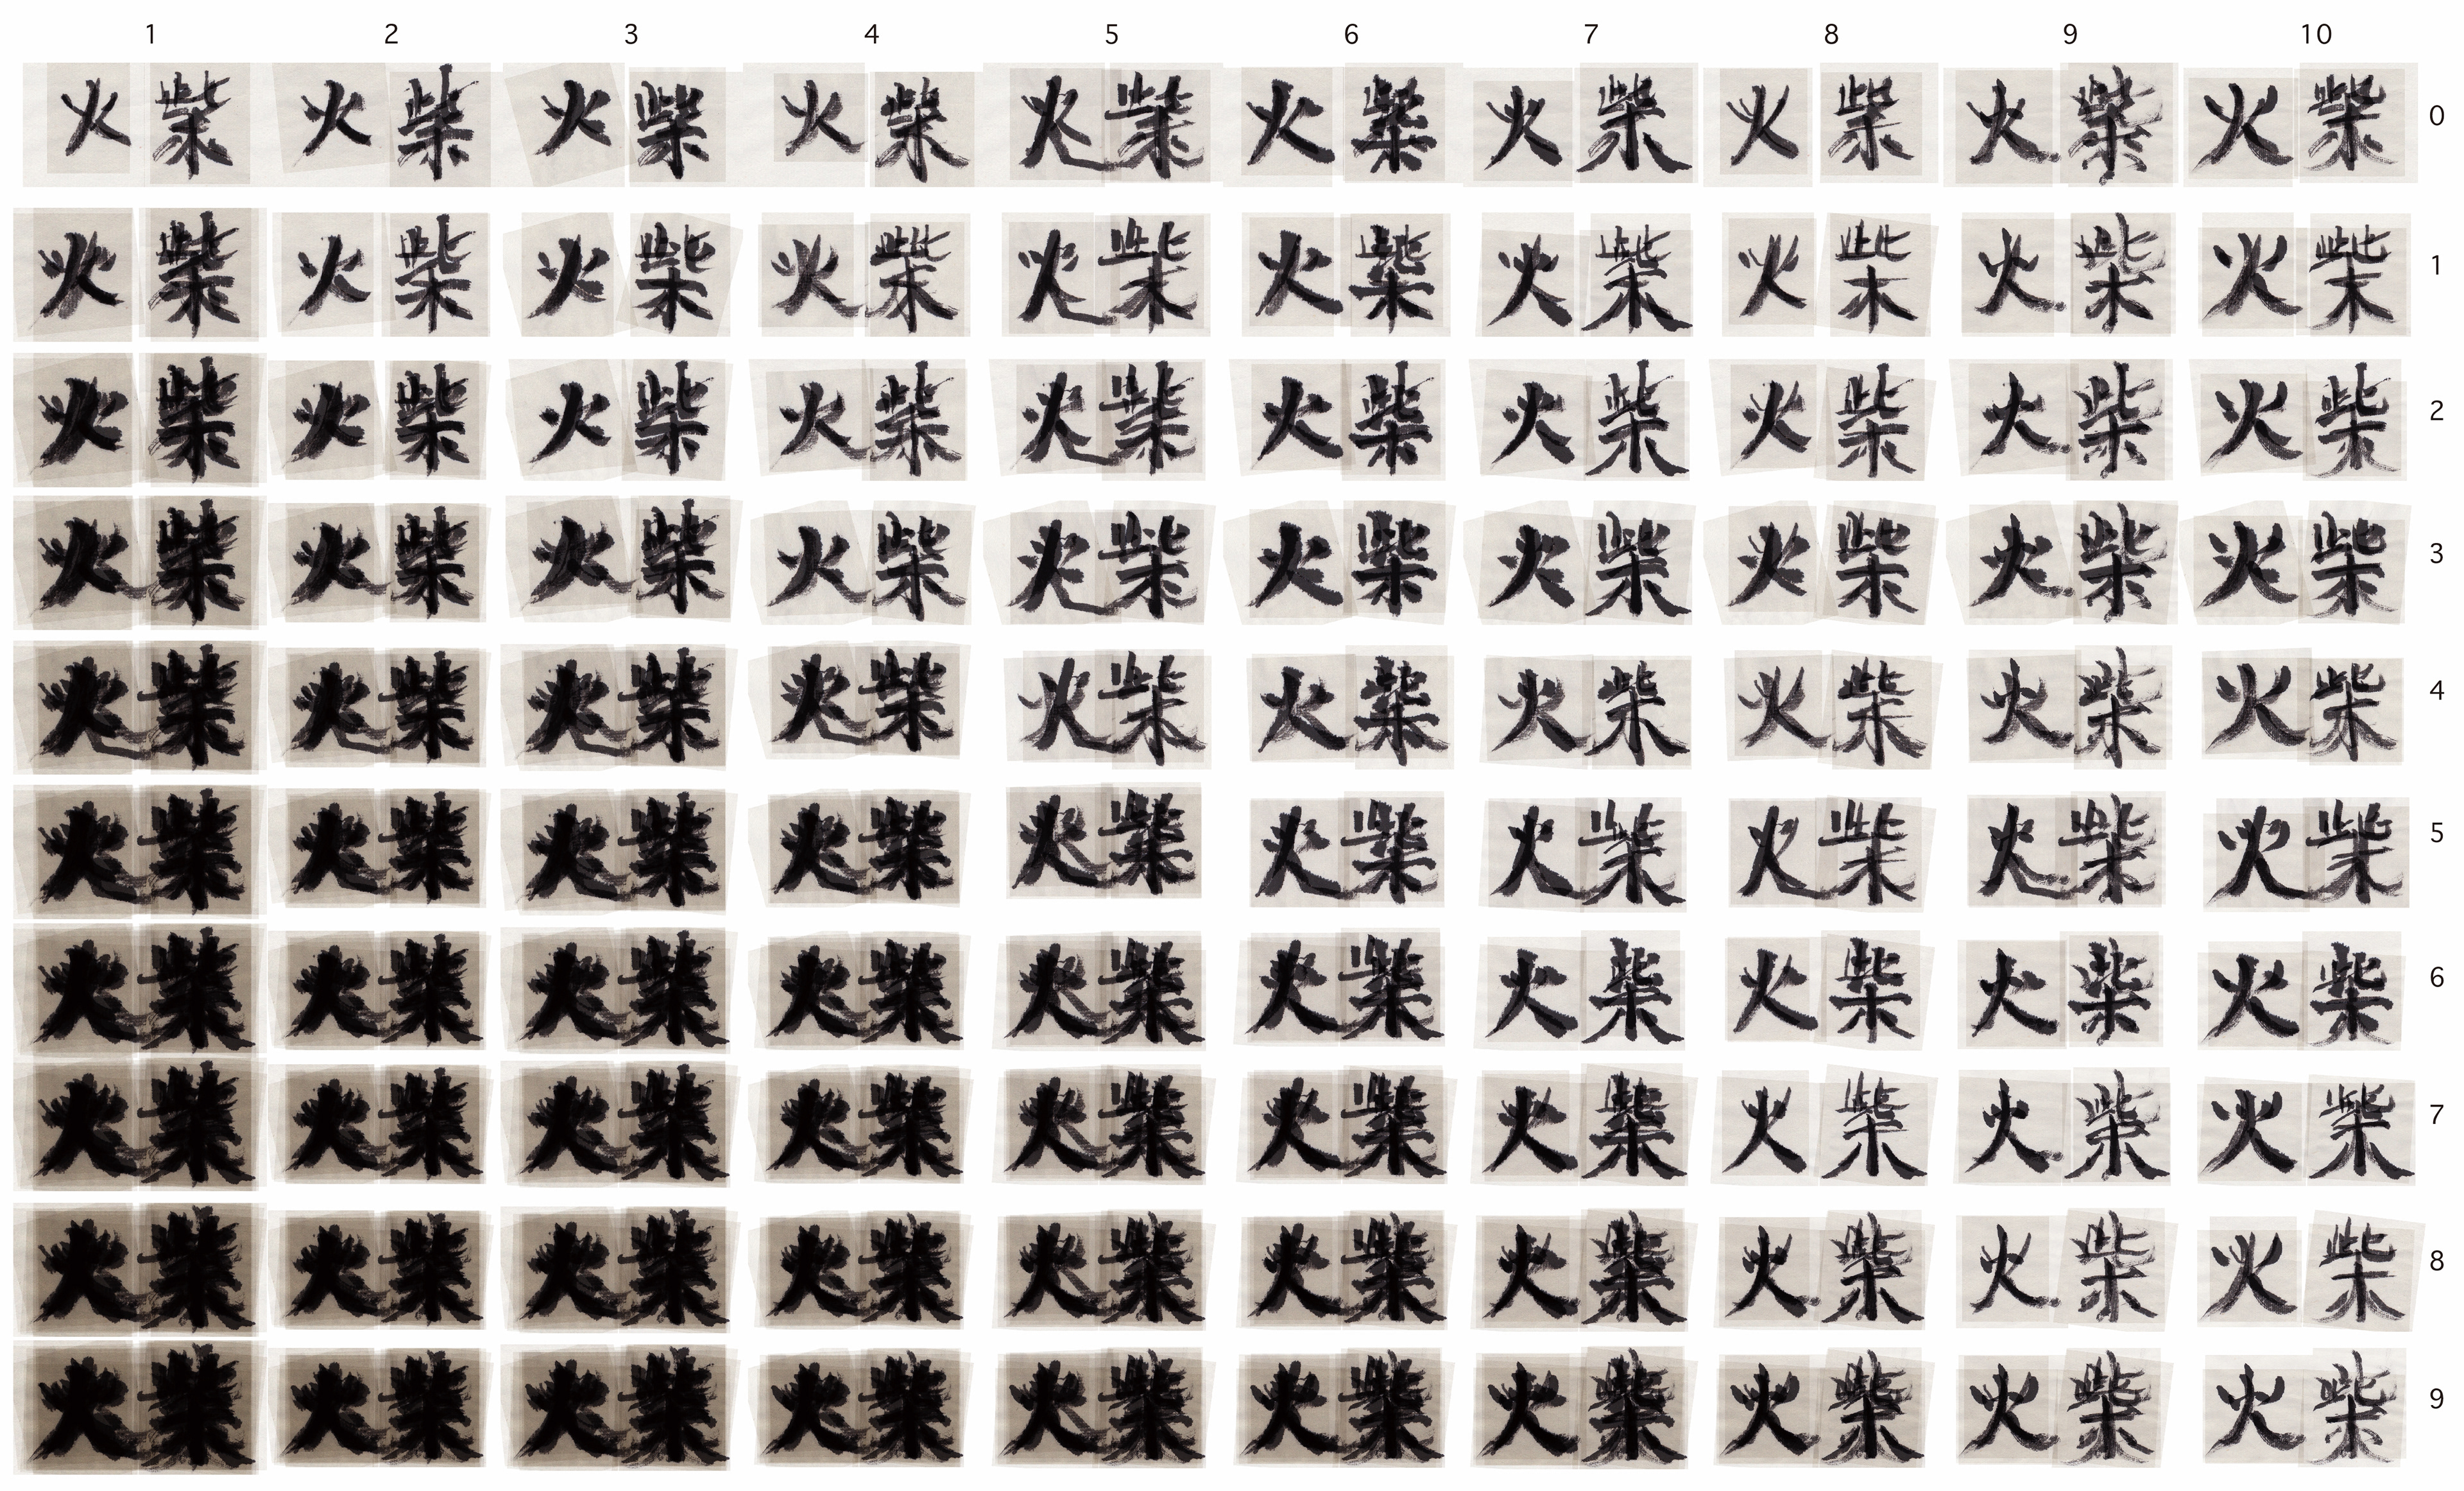 1 2 3 4 5 6 7 8 9 10
火柴 火柴 火柴 火柴 火柴 火柴 火柴 火柴 火柴 火柴 0
火柴 火柴 火柴 火柴 火柴 火柴 火柴 火柴 火柴 火柴 1
火柴 火柴 火柴 火柴 火柴 火柴 火柴 火柴 火柴 火柴 2
火柴 火柴 火柴 火柴 火柴 火柴 火柴 火柴 火柴 火柴 3
火柴 火柴 火柴 火柴 火柴 火柴 火柴 火柴 火柴 火柴 4
火柴 火柴 火柴 火柴 火柴 火柴 火柴 火柴 火柴 火柴 5
火柴 火柴 火柴 火柴 火柴 火柴 火柴 火柴 火柴 火柴 6
火柴 火柴 火柴 火柴 火柴 火柴 火柴 火柴 火柴 火柴 7
火柴 火柴 火柴 火柴 火柴 火柴 火柴 火柴 火柴 火柴 8
火柴 火柴 火柴 火柴 火柴 火柴 火柴 火柴 火柴 火柴 9